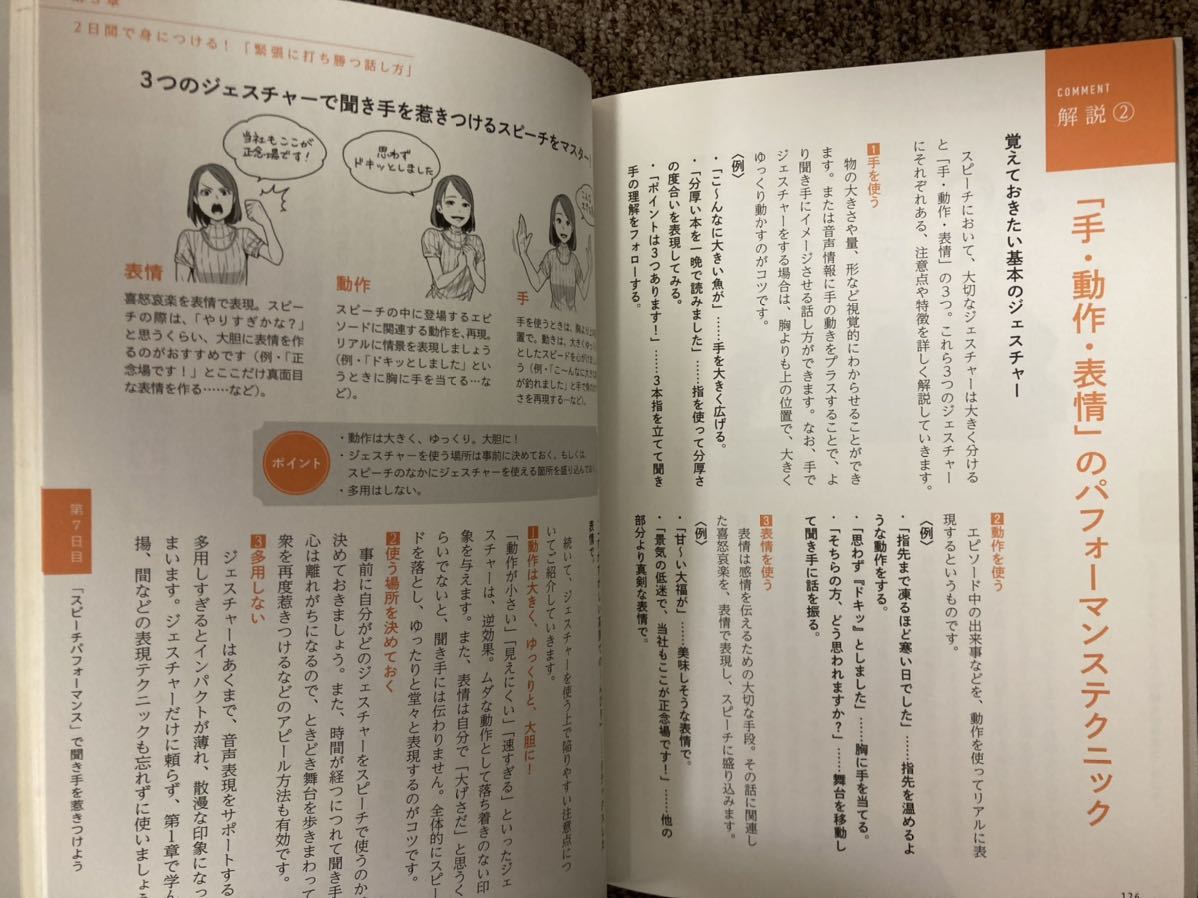 COMMENT
解説②
「手・動作・表情」のパフォーマンステクニック
覚えておきたい基本のジェスチャー
スピーチにおいて、大切なジェスチャーは大きく分ける
と「手・動作・表情」の3つ。これら3つのジェスチャー
にそれぞれある、注意点や特徴を詳しく解説していきます。
1手を使う
物の大きさや量、形など視覚的にわからせることができ
ます。または音声情報に手の動きをプラスすることで、よ
り聞き手にイメージさせる話し方ができます。なお、手で
ジェスチャーをする場合は、胸よりも上の位置で、大きく
ゆっくり動かすのがコツです。
〈例〉
・「こ〜んなに大きい魚が」……手を大きく広げる。
・「分厚い本を一晩で読みました」……指を使って分厚さ
の度合いを表現してみる。
・「ポイントは3つあります!」……3本指を立てて聞き
手の理解をフォローする。
2動作を使う
エピソード中の出来事などを、動作を使ってリアルに表
現するというものです。
〈例〉
・「指先まで凍るほど寒い日でした」……指先を温めるよ
うな動作をする。
・「思わず『ドキッ』としました」……胸に手を当てる。
・「そちらの方、どう思われますか?」……舞台を移動し
て聞き手に話を振る。
3表情を使う
表情は感情を伝えるための大切な手段。その話に関連し
た喜怒哀楽を、表情で表現し、スピーチに盛り込みます。
〈例〉
・「甘〜い大福が」……美味しそうな表情で。
・「景気の低迷で、当社もここが正念場です!」……他の
部分より真剣な表情で。
126
2日間で身につける!「緊張に打ち勝つ話し方」
3つのジェスチャーで聞き手を惹きつけるスピーチをマスター!
当社もここが
正念場です!
思わず
ドキッとしました
表情
喜怒哀楽を表情で表現。スピー
チの際は、「やりすぎかな?」
と思うくらい、大胆に表情を作
るのがおすすめです(例・「正
念場です!」とここだけ真面目
な表情を作る……など)。
動作
スピーチの中に登場するエピ
ソードに関連する動作を、再現。
リアルに情景を表現しましょう
(例・「ドキッとしました」とい
うときに胸に手を当てる…な
ど)。
手
手を使うときは、胸より上の
置で。動きは、大きくゆっ
としたスピードを心がけま
う(例・「こ〜んなに大き
が釣れました」と手で
さを再現する…など)。
ポイント
・動作は大きく、ゆっくり。大胆に!
・ジェスチャーを使う場所は事前に決めておく。もしくは、
スピーチのなかにジェスチャーを使える箇所を盛り込んでおく
・多用はしない。
続いて、ジェスチャーを使う上で陥りやすい注意点につ
いてご紹介していきます。
1動作は大きく、ゆっくりと、大胆に!
「動作が小さい」「見えにくい」「速すぎる」といったジェ
スチャーは、逆効果。ムダな動作として落ち着きのない印
象を与えます。また、表情は自分で「大げさだ」と思うく
らいでないと、聞き手には伝わりません。全体的にスピー
ドを落とし、ゆったりと堂々と表現するのがコツです。
2使う場所を決めておく
事前に自分がどのジェスチャーをスピーチで使うのか
決めておきましょう。また、時間が経つにつれて聞き手
心は離れがちになるので、ときどき舞台を歩きまわって
衆を再度惹きつけるなどのアピール方法も有効です。
3多用しない
ジェスチャーはあくまで、音声表現をサポートする
多用しすぎるとインパクトが薄れ、散漫な印象になっ
まいます。ジェスチャーだけに頼らず、第1章で学ん
揚、間などの表現テクニックも忘れずに使いましょう
第7日目
「スピーチパフォーマンス」で聞き手を惹きつけよう